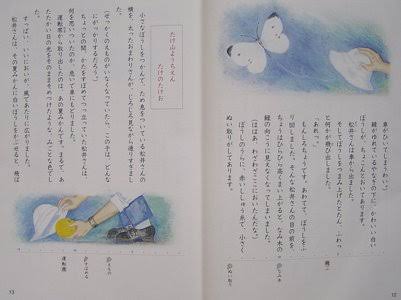 車がひいてしまうわい。」
緑がゆれているやなぎの下に、かわいい白い
ぼうしが、ちょこんとおいてあります。
松井さんは車から出ました。
そしてぼうしをつまみ上げたとたん、ふわっ
と何かが飛び出しました。
「あれっ。」
もんしろちょうです。あわてて、ぼうしをふ
り回しました。そんな松井さんの目の前を、
ちょうはひらひら高くまい上がると、なみ木の
緑の向こうに見えなくなってしまいました。
(ははあ、わざわざここにおいたんだな。)
ぼうしのうらに、赤いししゅう糸で、小さく
ぬい取りがしてあります。
飛ぶ
なみ木
ぬい取り
12
たけ山ようちえん
たけのたけお
小さなぼうしをつかんで、ため息をついている松井さんの
横を、太ったおまわりさんが、じろじろ見ながら通りすぎました。
(せっかくのえものがいなくなっていたら、この子は、どんな
にがっかりするだろう。)
ちょっとの間、かたをすぼめてつっ立っていた松井さんは、
何を思いついたのか、急いで車にもどりました。
運転席から取り出したのは、あの夏みかんです。まるで、あ
たたかい日の光をそのままそめつけたような、みごとな色でし
た。すっぱい、いいにおいが、風であたりに広がりました。
松井さんは、その夏みかんに白いぼうしをかぶせると、飛ば
えもの
すぼめる
運転席
13